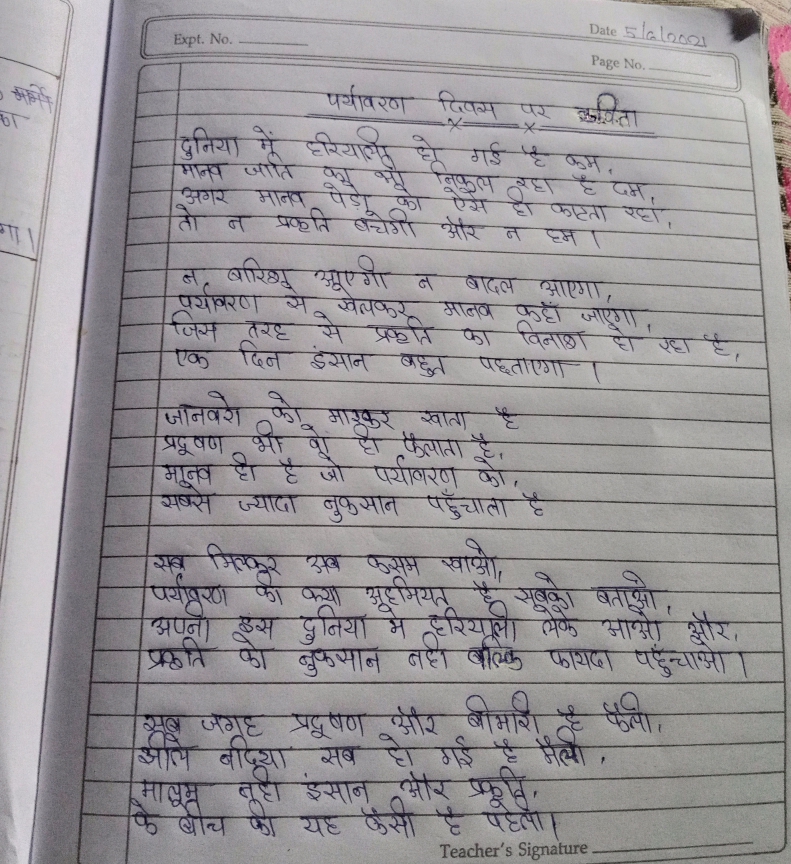 Expt. No.
Date 5/6/2021
Page No.
पर्यावरण दिवस पर कविता
दुनिया में हरियाली हो गई है कम,
मानव जाति का भी निकल रहा है दम,
अगर मानव पेड़ो को ऐसे ही काटता रहा,
तो न प्रकृति बचेगी और न हम।
न बारिश आएगी न बादल आएगा,
पर्यावरण से खेलकर मानव कहाँ जाएगा,
जिस तरह से प्रकृति का विनाश हो रहा है,
एक दिन इंसान बहुत पछताएगा।
जानवरो को मारकर खाता है
प्रदूषण भी वो ही फैलाता है,
मानव ही है जो पर्यावरण को,
सबसे ज्यादा नुकसान पहुँचाता है
सब मिलकर अब कसम खाओ,
पर्यावरण की क्या अहमियत है सबको बताओ,
अपनी इस दुनिया मे हरियाली लेके आओ और,
प्रकृति को नुकसान नही बल्कि फायदा पहुँन्चाओ।
सब जगह प्रदूषण और बीमारी है फैली,
झीले नदिया सब हो गई है मैली,
मालूम नही इंसान और प्रकृति,
के बीच की यह कैसी है पहेली।
Teacher's Signature